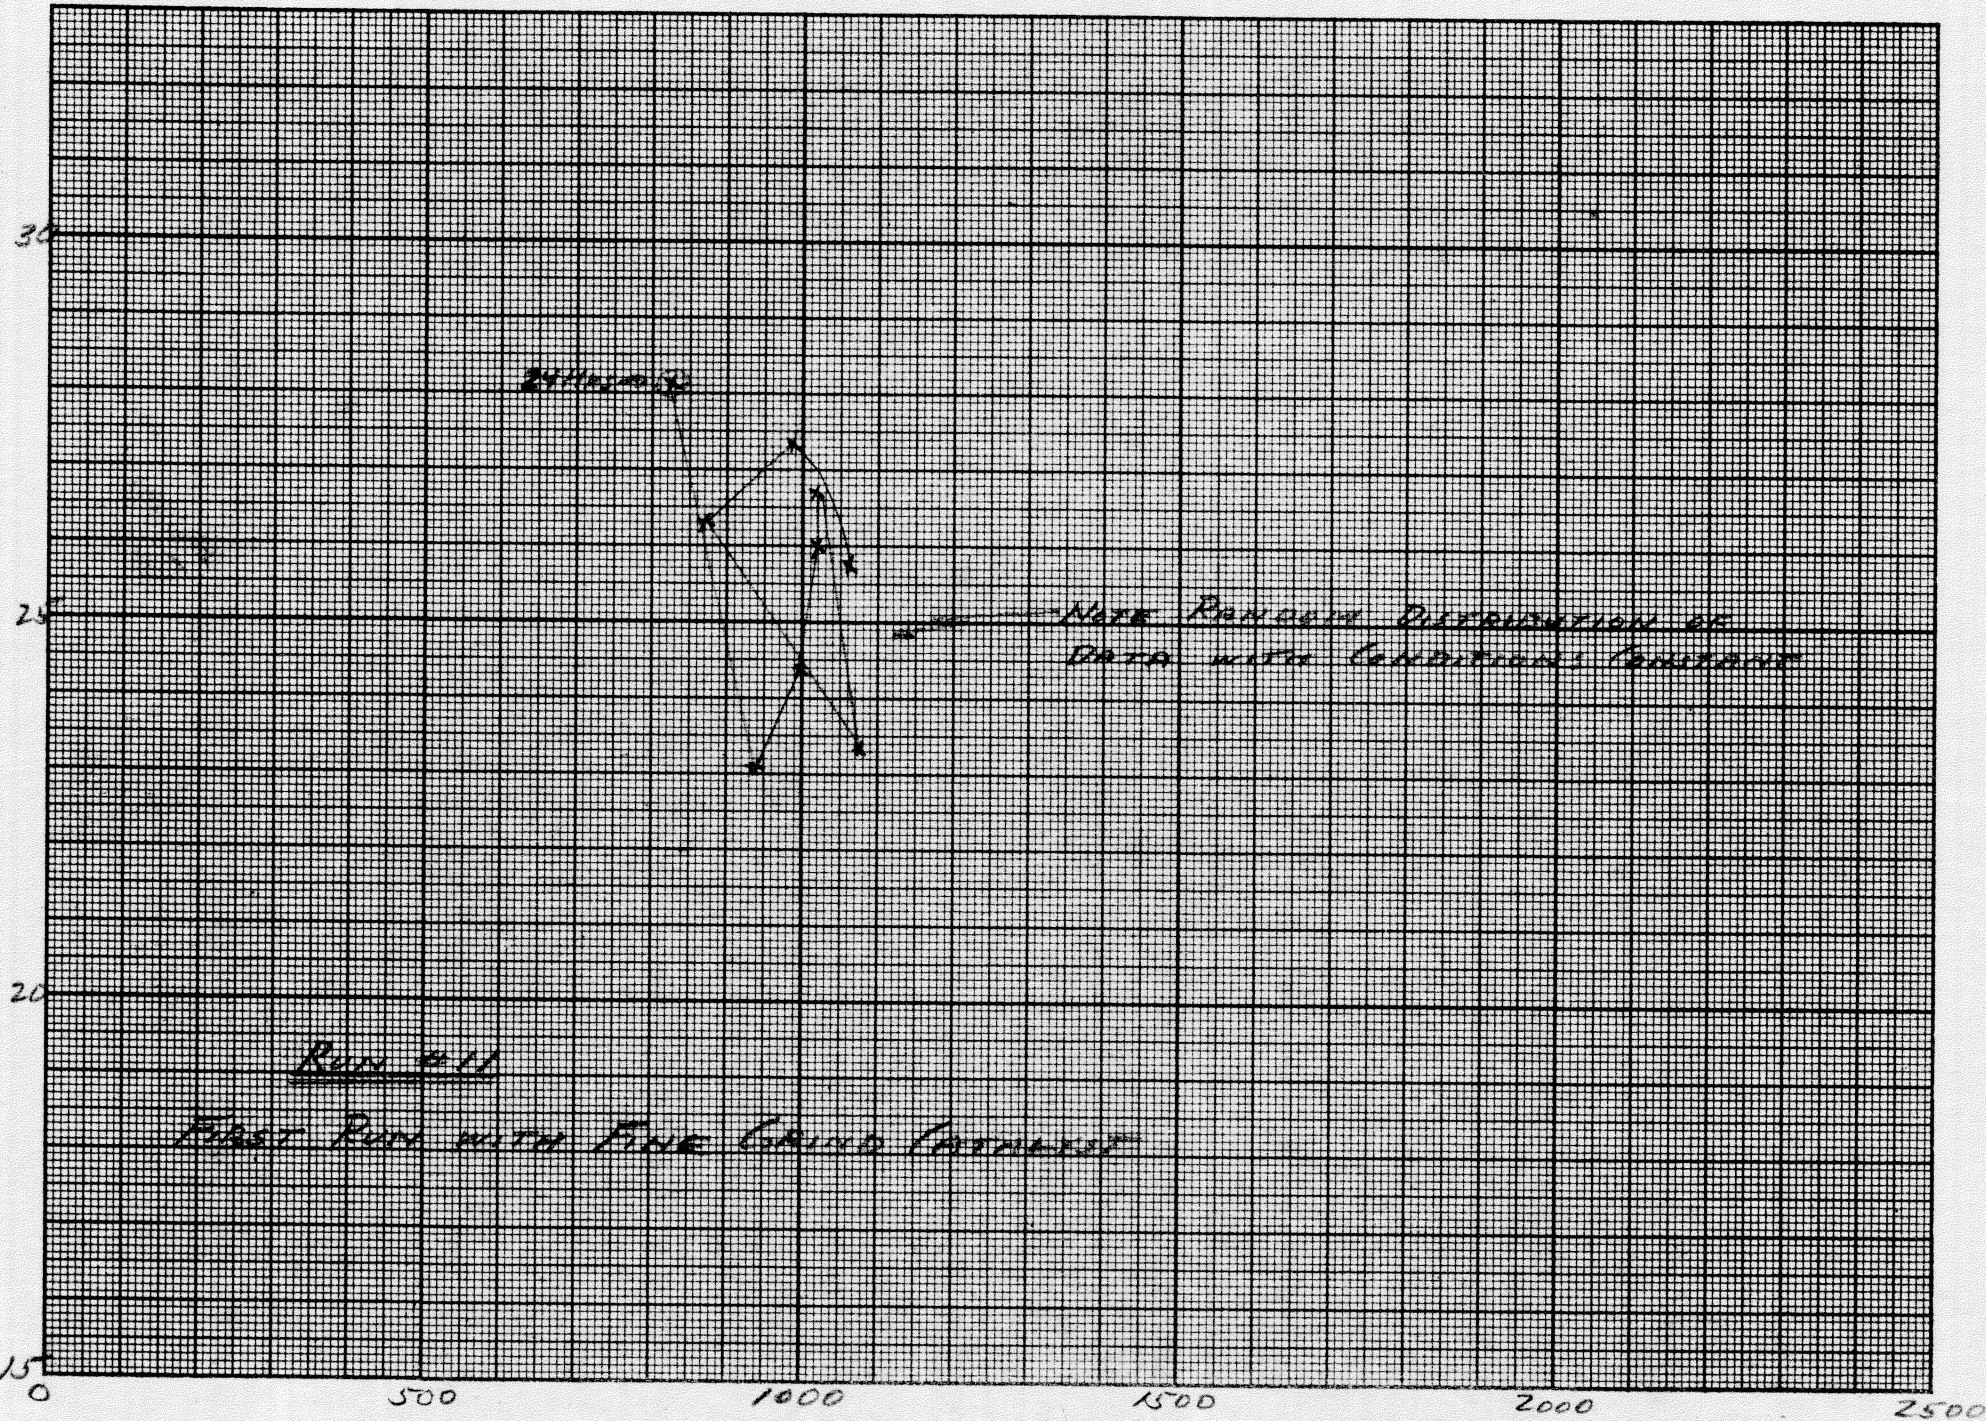 30
24 Hrs
25
NOTE RANDOM DISTRIBUTION OF
DATA WITH CONDITIONS CONSTANT
20
RUN #11
FIRST RUN WITH FINE GRIND CATALYST
15
0 500 1000 1500 2000 2500